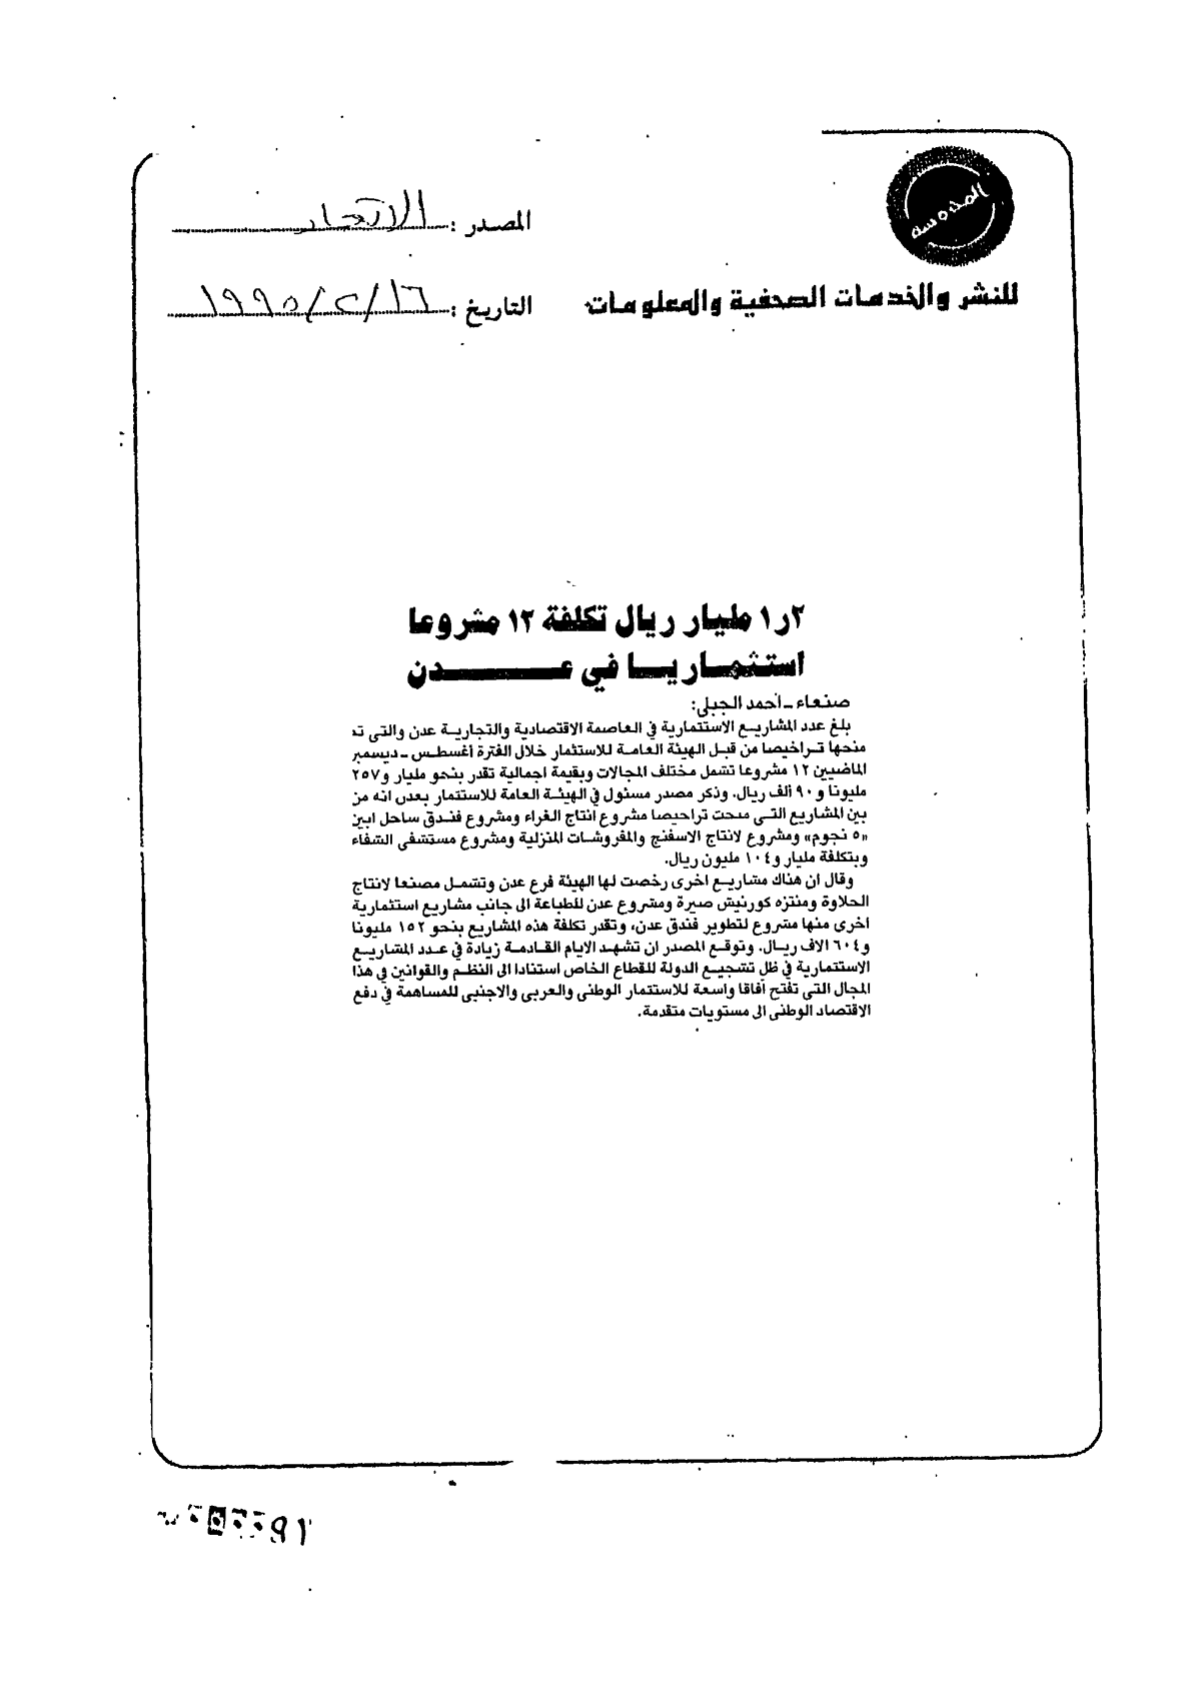 المدوسه
للنشر والخدمات الصحفية والمعلومات
المصدر : الاتحاد
التاريخ : ١٩٩٥/٢/١٦
١٫٢ مليار ريال تكلفة ١٢ مشروعا
استثماريا في عدن
صنعاء ـ احمد الجبلى:
بلغ عدد المشاريع الاستثمارية في العاصمة الاقتصادية والتجارية عدن والتى تم
منحها تراخيصا من قبل الهيئة العامة للاستثمار خلال الفترة أغسطس ـ ديسمبر
الماضيين ١٢ مشروعا تشمل مختلف المجالات وبقيمة اجمالية تقدر بنحو مليار و٢٥٧
مليونا و ٩٠ ألف ريال. وذكر مصدر مسئول في الهيئة العامة للاستثمار بعدن انه من
بين المشاريع التى منحت تراخيصا مشروع انتاج الغراء ومشروع فندق ساحل ابين
«٥ نجوم» ومشروع لانتاج الاسفنج والمفروشات المنزلية ومشروع مستشفى الشفاء
وبتكلفة مليار و١٠٤ مليون ريال.
وقال ان هناك مشاريع اخرى رخصت لها الهيئة فرع عدن وتشمل مصنعا لانتاج
الحلاوة ومنتزه كورنيش صيرة ومشروع عدن للطباعة الى جانب مشاريع استثمارية
اخرى منها مشروع لتطوير فندق عدن، وتقدر تكلفة هذه المشاريع بنحو ١٥٢ مليونا
و٦٠٤ الاف ريال. وتوقع المصدر ان تشهد الايام القادمة زيادة في عدد المشاريع
الاستثمارية في ظل تشجيع الدولة للقطاع الخاص استنادا الى النظم والقوانين في هذا
المجال التى تفتح أفاقا واسعة للاستثمار الوطنى والعربى والاجنبى للمساهمة في دفع
الاقتصاد الوطنى الى مستويات متقدمة.